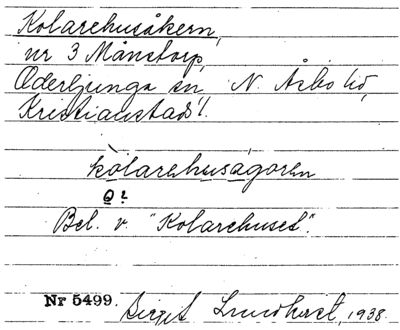 Kolarehusåkern,
nr 3 Månstorp,
Oderljunga sn, N. Åsbo hd,
Kristianstads l.
kòlarehuságoren
Bel. v. "Kolarehuset".
Nr 5499. Birgit Lundkvist, 1938.